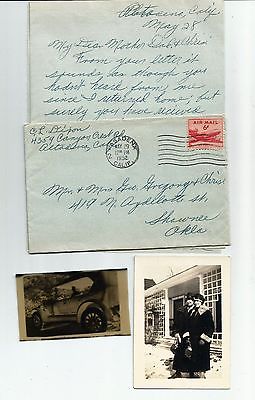 Altadena, Calif
May 28
My Dear Mother Dad & Chris:
From your letter it
sounds as though you
hadn't heard from me
since I returned home, but
surely you have received
C.R. Dixon
4354 Canyon Crest Rd
Altadena, Cal
MAY 29
1952
CALIF.
AIR MAIL
6¢
Mr & Mrs Geo. & Chris
419 N. Aydelotte St.
Shawnee
Okla